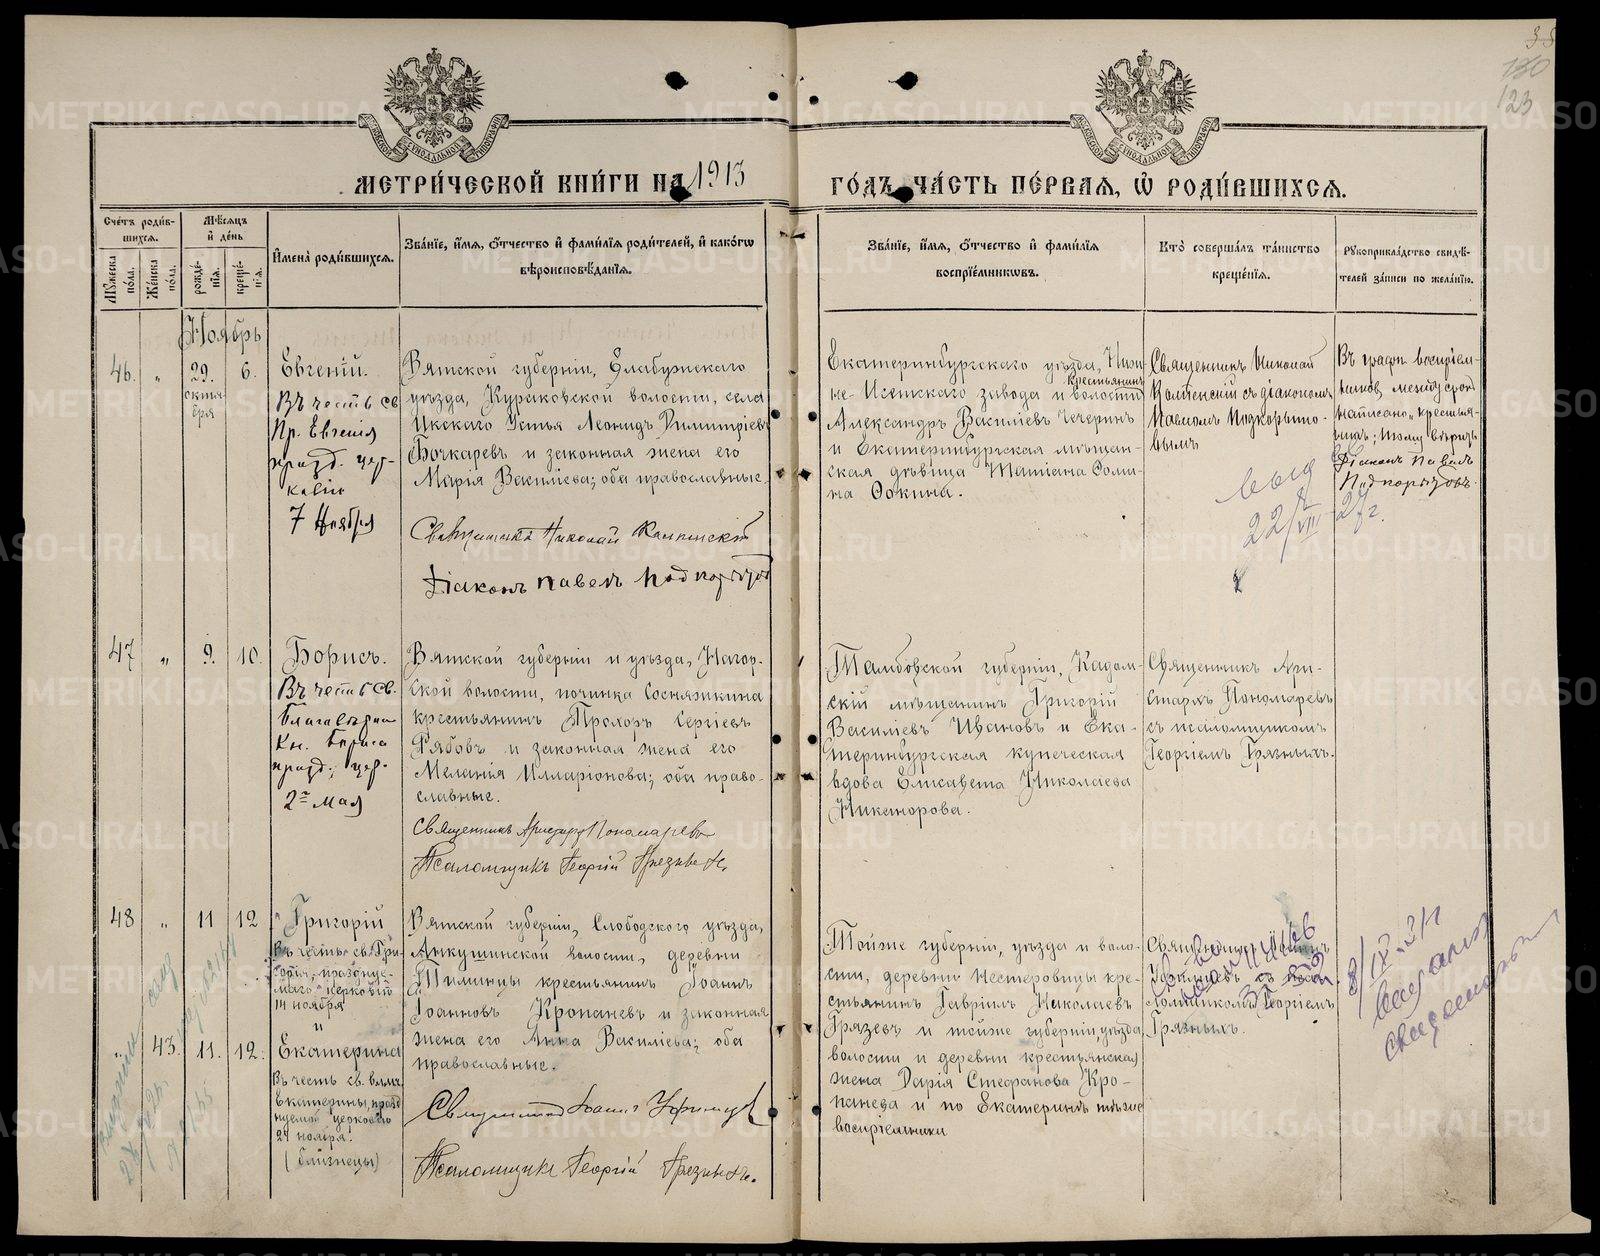 МЕТРИ́ЧЕСКОЙ КНИ́ГИ НА 1913
ГО́ДЪ, ЧА́СТЬ ПЕ́РВАѦ, Ѡ РОДИ́ВШИХСѦ.
123
Счетъ роди́в-
шихся.
Мѣсяцъ
и день
Мужеска
пола.
Женска
пола.
рожде́-
нія.
креще́-
нія.
Имена родившихся.
Зва́нїе, и́мѧ, о́тчество и фами́лїѧ роди́телей, и како́гѡ
вѣроисповѣ́данїѧ.
Зва́нїе, и́мѧ, о́тчество и фами́лїѧ
воспрїе́мникѡвъ.
Кто̀ соверша́лъ та́инство
креще́нїѧ.
Рꙋкоприкла́дство свидѣ́-
телей за́писи по жела́нїю.
Ноябрь
46. „ 29. 6.
октя-
бря
Евгеній.
Въ честь св
Пр. Евгенія
празд. цер-
ковію
7 Ноября
Вятской губерніи, Елабужскаго
уѣзда, Кураковской волости, села
Икскаго Устья Леонидъ Димитріевъ
Бочкаревъ и законная жена его
Марія Василіева; оба православные.
Священникъ Николай
Діаконъ Павелъ Подкорытовъ
Екатеринбургскаго уѣзда, Ниж-
не-Исетскаго завода и волости крестьянинъ
Александръ Василіевъ Чечеринъ
и Екатеринбургская мѣщан-
ская дѣвица Татіана
Сокина.
Священникъ Николай
съ діакономъ
Павломъ Подкорыто-
вымъ
Въ графѣ воспріем-
никовъ между строк
написано „крестья-
нинъ; тому вѣрить
Діаконъ Павелъ
Подкорытовъ.
22/VIII-27г.
47 „ 9. 10.
Борисъ.
Въ честь св.
Благовѣрн
Кн. Бориса
празд. цер.
2го мая
Вятской губерніи и уѣзда, Нагор-
ской волости, починка Соснягикина
крестьянинъ Прохоръ Сергіевъ
Рябовъ и законная жена его
Меланія Илларіонова; оба право-
славные.
Священникъ Аристархъ Пономаревъ
Псаломщикъ Георгій Грязныхъ.
Тамбовской губерніи, Кадом-
скій мѣщанинъ Григорій
Василіевъ Ивановъ и Ека-
теринбургская купеческая
вдова Елисавета Николаева
Никанорова.
Священникъ Ари-
стархъ Пономаревъ
съ псаломщикомъ
Георгіемъ Грязныхъ.
48 „ 11 12
Григорій
Въ честь св. Гри-
горія, празднуе-
маго церковію
14 ноября
и
„ 43. 11. 12.
Екатерина
Въ честь св. вмч.
Екатерины, празд
нуемой церковію
24 ноября.
(близнецы)
Вятской губерніи, Слободского уѣзда,
Анкушинской волости, деревни
крестьянинъ Іоаннъ
Іоанновъ Кропаневъ и законная
жена его Анна Василіева; оба
православные.
Священникъ Іоаннъ
Псаломщикъ Георгій Грязныхъ.
Тойже губерніи, уѣзда и воло-
сти, деревни Нестеровцы кре-
стьянинъ Гавріилъ Николаевъ
Грязевъ и тойже губерніи, уѣзда
волости и деревни крестьянская
жена Дарія Стефанова Кро-
панева и по Екатеринѣ тѣже
воспріемники
Священникъ Іоаннъ
съ пса-
ломщикомъ Георгіемъ
Грязныхъ.
METRIKI.GASO-URAL.RU